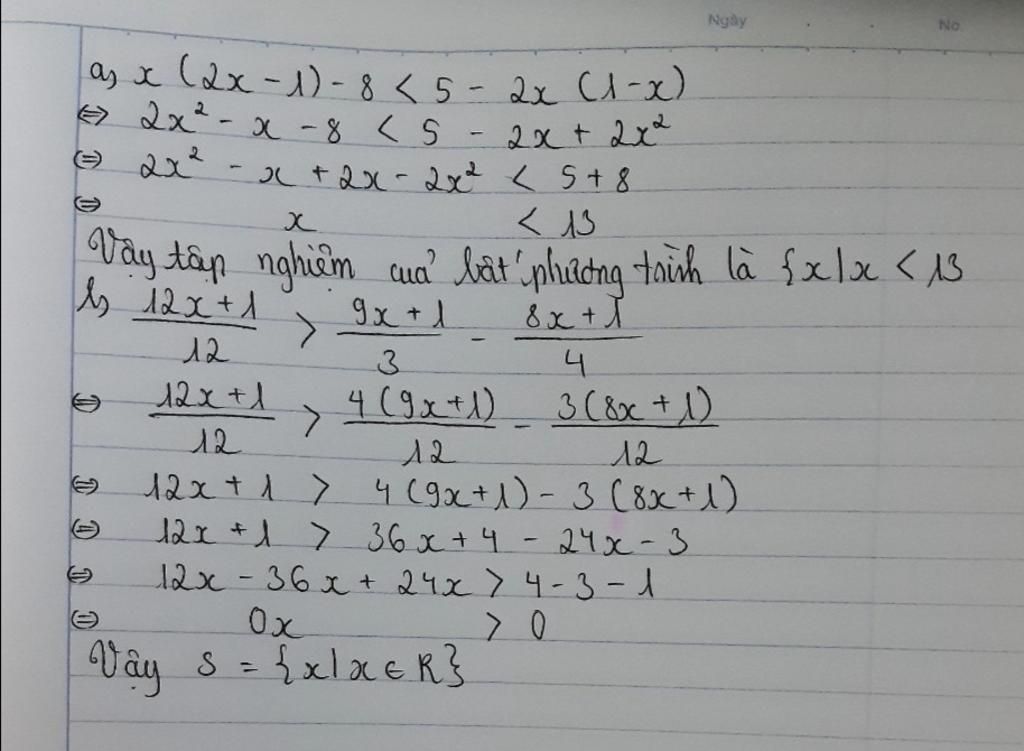 Ngày . . No
a, x (2x - 1) - 8 < 5 - 2x (1-x)
⇔ 2x² - x - 8 < 5 - 2x + 2x²
⇔ 2x² - x + 2x - 2x² < 5 + 8
⇔ x < 13
Vậy tập nghiệm của bất phương trình là {x/x < 13
b, (12x + 1)/12 > (9x + 1)/3 - (8x + 1)/4
⇔ (12x + 1)/12 > 4(9x+1)/12 - 3(8x + 1)/12
⇔ 12x + 1 > 4(9x+1) - 3(8x+1)
⇔ 12x + 1 > 36x + 4 - 24x - 3
⇔ 12x - 36x + 24x > 4 - 3 - 1
⇔ 0x > 0
Vậy S = {x/x ∈ R}